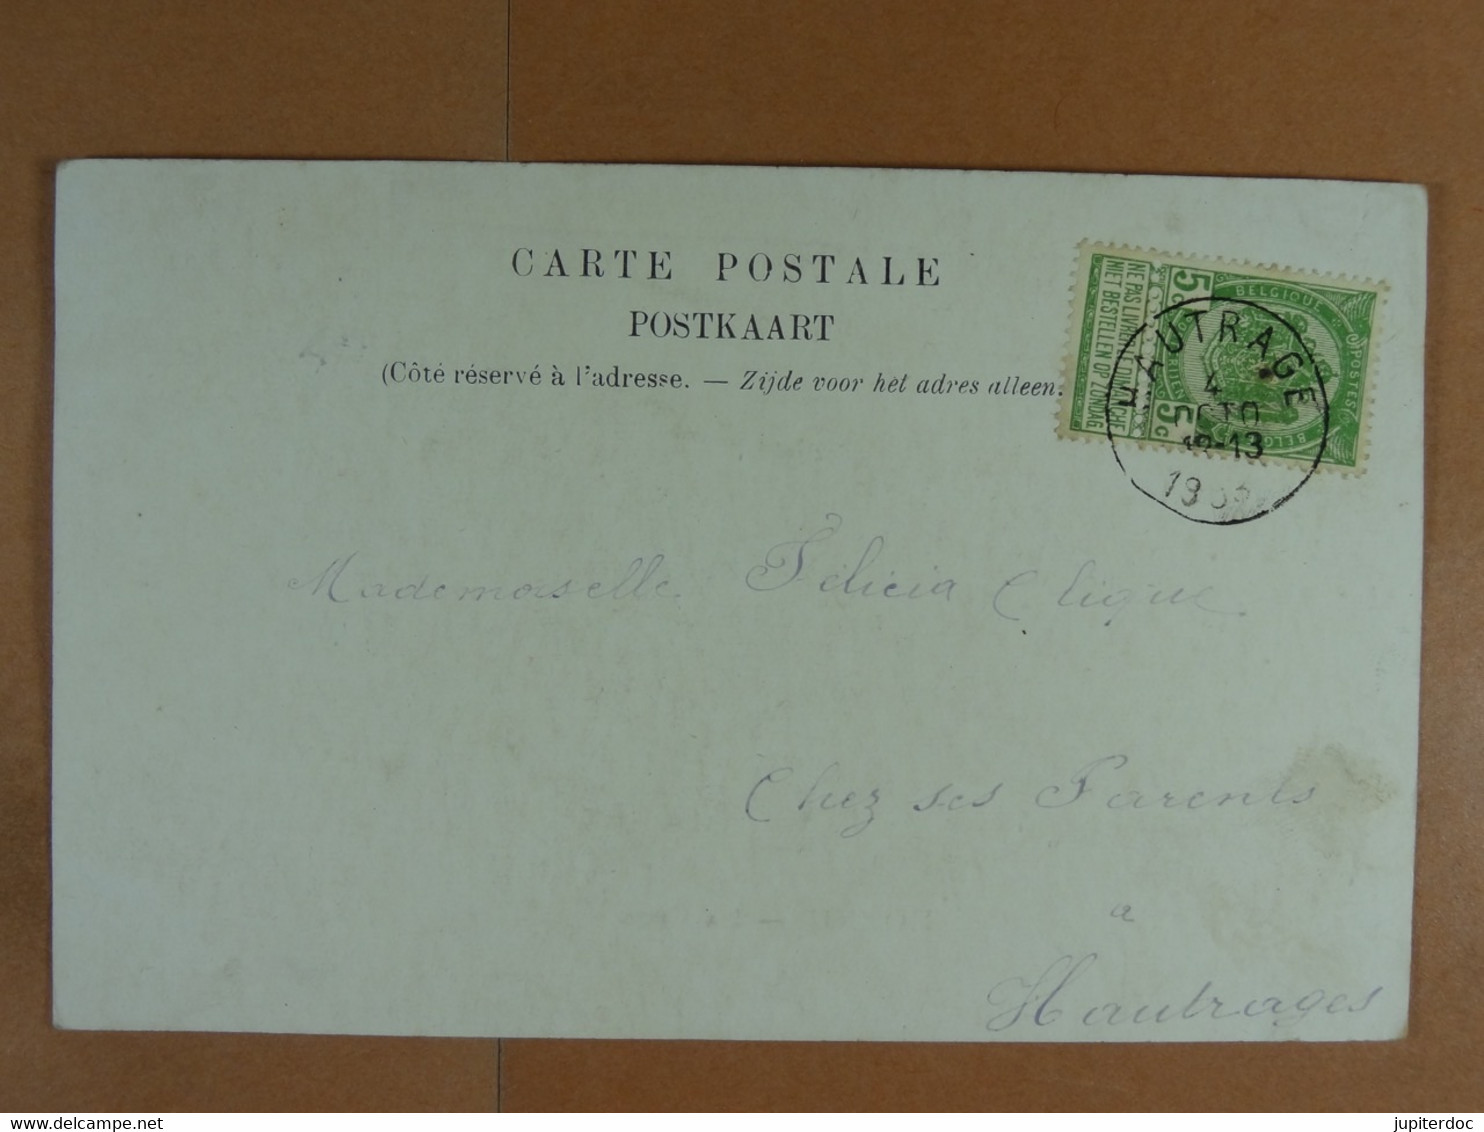 CARTE POSTALE
POSTKAART
(Côté réservé à l'adresse. — Zijde voor hét adres alleen.
BELGIQUE
POSTES
5 c
5 c
NE PAS LIVRER LE DIMANCHE
NIET BESTELLEN OP ZONDAG
HAUTRAGE
4
OCTO
12-13
Mademoiselle Félicia Clique
Chez ses Parents
a
Hautrages
www.delcampe.net
jupiterdoc